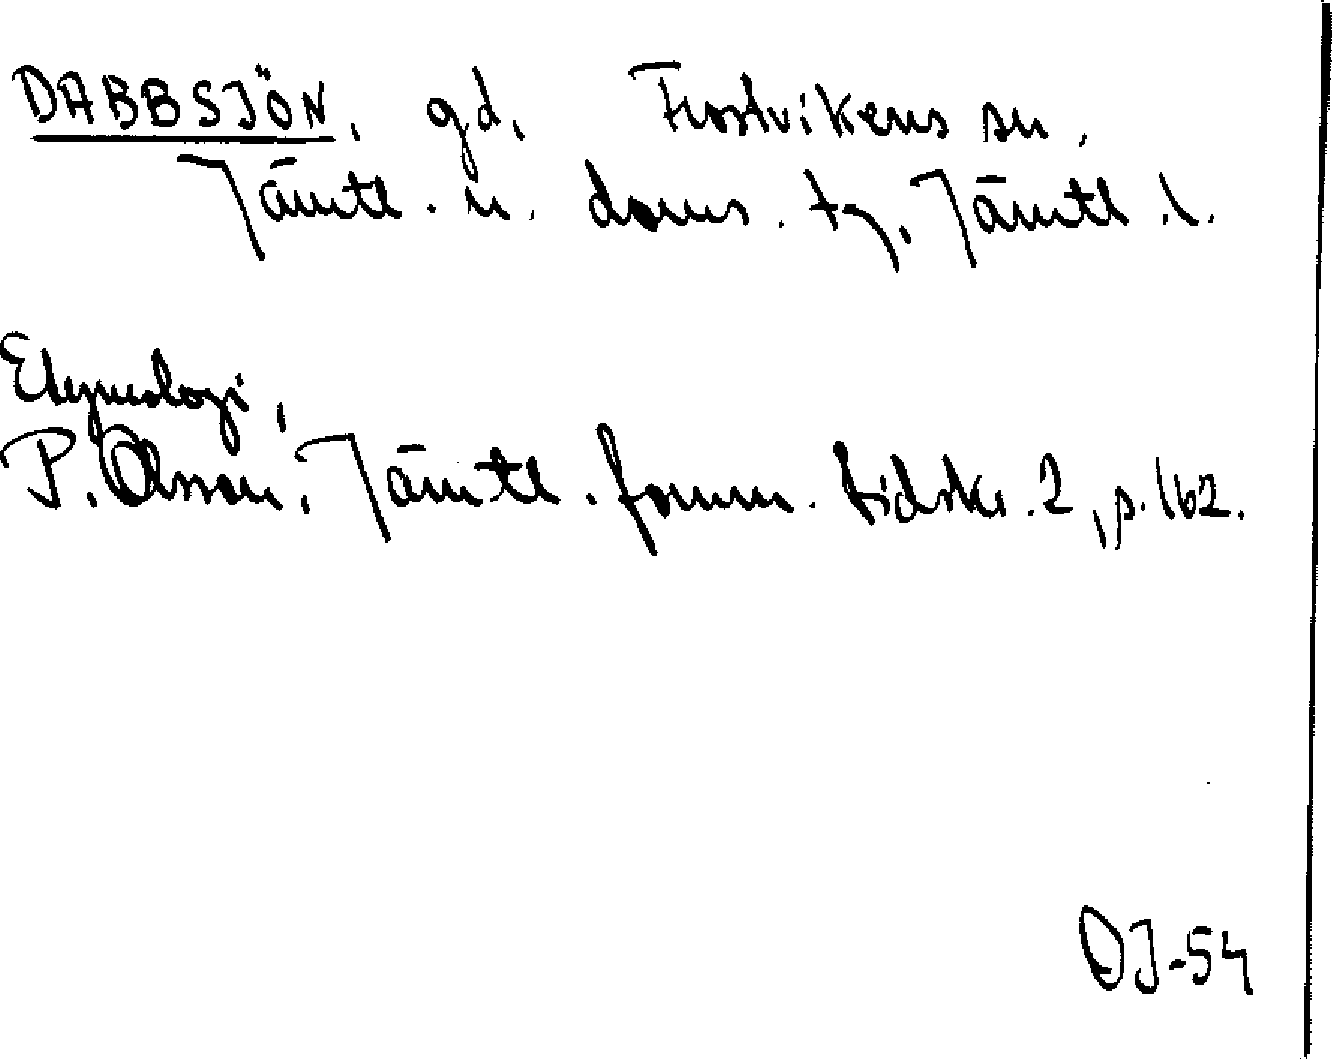 DABBSJÖN, gd, Frostvikens sn,
Jämtl. n. doms. tg, Jämtl. l.
Etymologi,
P. Olsson, Jämtl. fornm. tidskr. 2, s. 162.
OJ-54